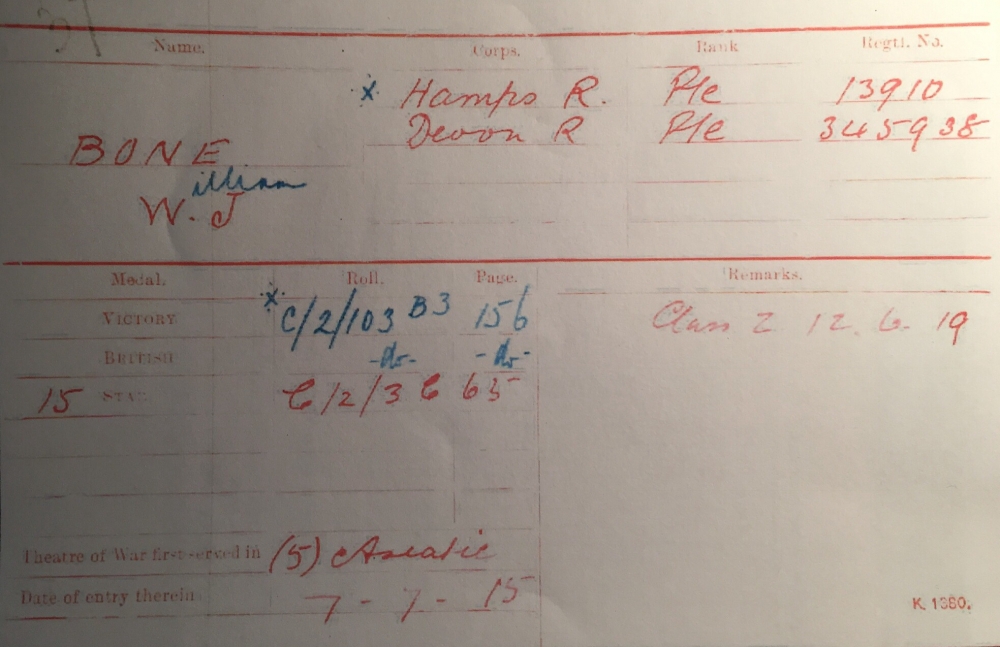 37
Name. Corps. Rank Regtl. No.
x Hamps R. Pte 13910
Devon R Pte 345938
BONE
illiam
W. J
Medal. Roll. Page. Remarks.
VICTORY x C/2/103 B3 156 Class Z 12. 6. 19
BRITISH -do- -do-
15 STAR C/2/3 C 65
Theatre of War first served in (5) Asiatic
Date of entry therein 7 - 7 - 15
K. 1380.